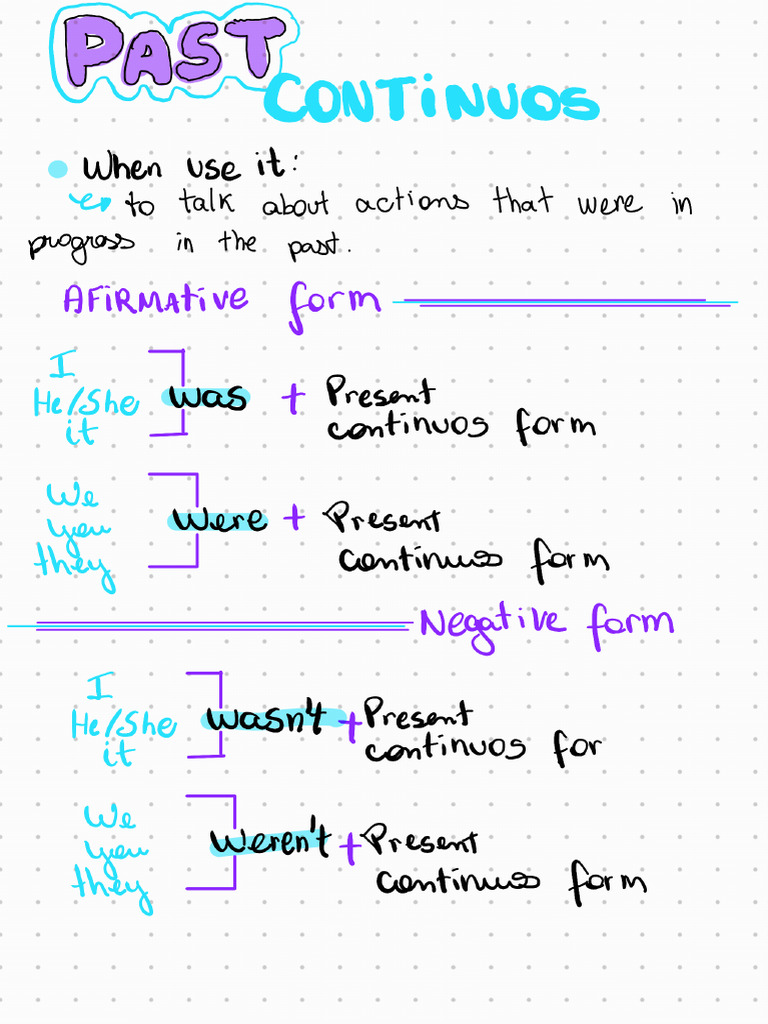 PAST
CONTINUOS
When use it:
to talk about actions that were in
progress in the past.
AFIRMATIVE form
I
He/She
it
was + Present
continuos form
We
you
they
were + Present
continuos form
Negative form
I
He/She
it
wasn't + Present
continuos for
We
you
they
weren't + Present
continuos form